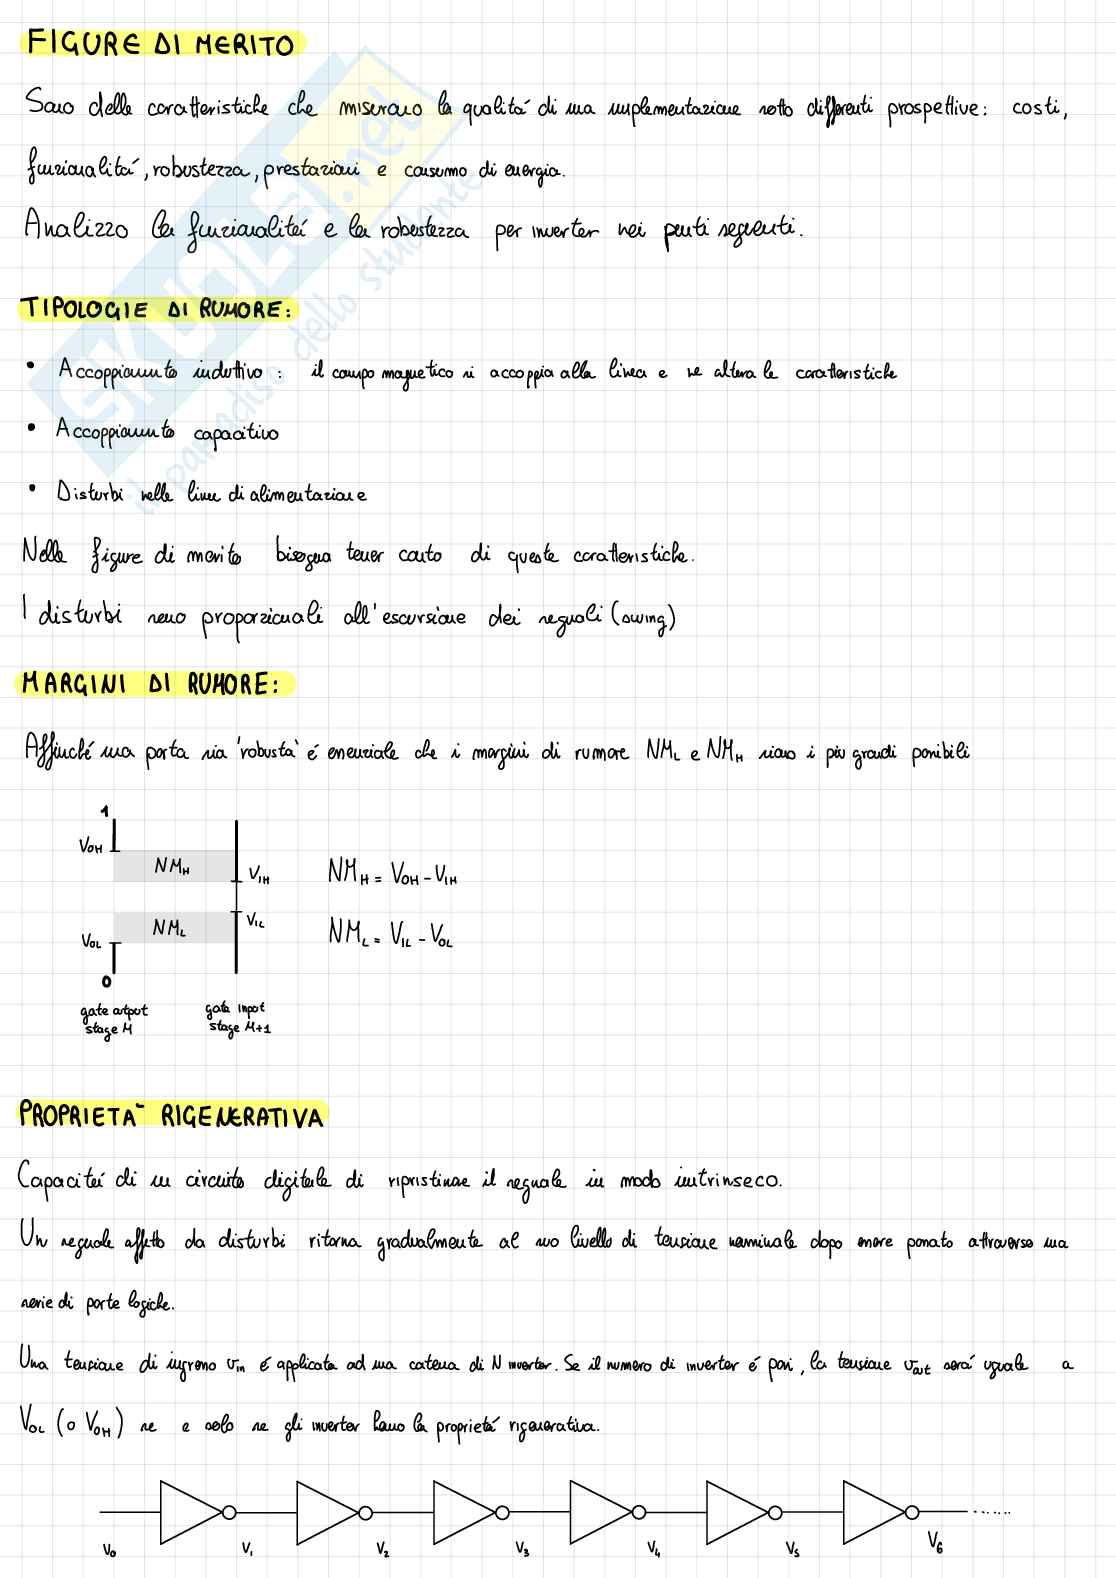 FIGURE DI MERITO
Sono delle caratteristiche che misurano la qualitá di una implementazione sotto differenti prospettive: costi,
funzionalitá, robustezza, prestazioni e consumo di energia.
Analizzo la funzionalitá e la robustezza per inverter nei punti seguenti.
TIPOLOGIE DI RUMORE:
• Accoppiamento induttivo: il campo magnetico si accoppia alla linea e ne altera le caratteristiche
• Accoppiamento capacitivo
• Disturbi nelle linee di alimentazione
Nelle figure di merito bisogna tener conto di queste caratteristiche.
I disturbi sono proporzionali all'escursione dei segnali (swing)
MARGINI DI RUMORE:
Affinché una porta sia 'robusta' é essenziale che i margini di rumore NML e NMH siano i piu grandi possibili
1
VOH
NMH
VIH
NMH = VOH - VIH
NML
VIL
NML = VIL - VOL
VOL
0
gate output
stage M
gate input
stage M+1
PROPRIETA' RIGENERATIVA
Capacitá di un circuito digitale di ripristinare il segnale in modo intrinseco.
Un segnale affetto da disturbi ritorna gradualmente al suo livello di tensione nominale dopo essere passato attraverso una
serie di porte logiche.
Una tensione di ingresso vin é applicata ad una catena di N inverter. Se il numero di inverter é pari, la tensione vout sará uguale a
VOL (o VOH) se e solo se gli inverter hanno la proprietá rigenerativa.
V0 V1 V2 V3 V4 V5 V6
SKUOLA.net
il paradiso dello studente